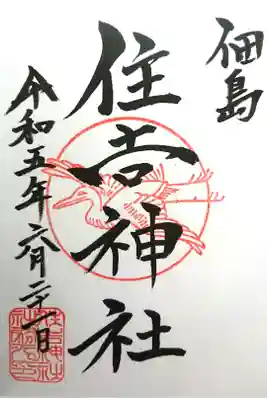 佃島
住吉神社
令和五年六月二十一日